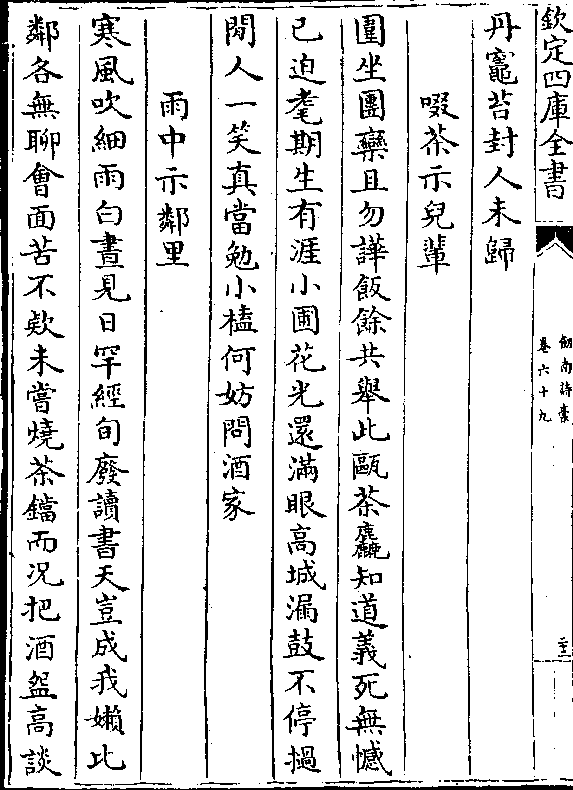 欽定四庫全書
劔南詩藁
卷六十九
丹竈苔封人未歸
啜茶示兒輩
圍坐團欒且勿譁飯餘共舉此甌茶麤知道義死無憾
已迫耄期生有涯小圃花光還滿眼高城漏鼓不停撾
閒人一笑真當勉小榼何妨問酒家
雨中示鄰里
寒風吹細雨白晝見日罕經旬廢讀書天豈成我嬾比
鄰各無聊會面苦不欵未嘗燒茶鐺而况把酒盌高談